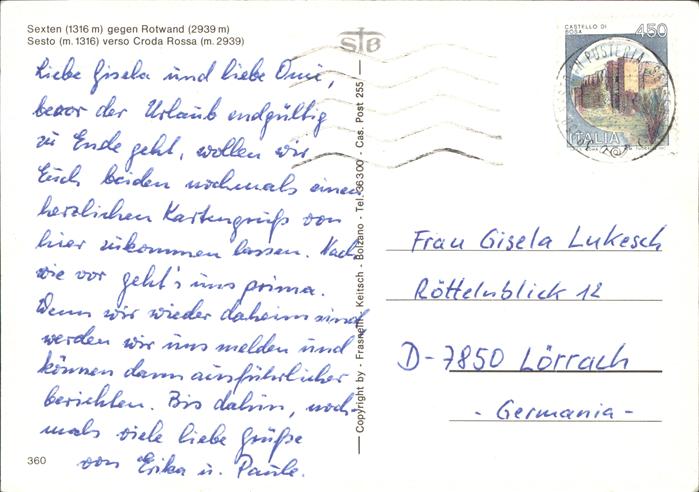 Sexten (1316 m) gegen Rotwand (2939 m)
Sesto (m. 1316) verso Croda Rossa (m. 2939)
Liebe Gisela und liebe Omi,
bevor der Urlaub endgültig
zu Ende geht, wollen wir
Euch beiden nochmals einen
herzlichen Kartengruß von
hier zukommen lassen. Nach
wie vor geht's uns prima.
Wenn wir wieder daheim sind
werden wir uns melden und
können dann ausführlicher
berichten. Bis dahin, noch-
mals viele liebe Grüße
von Erika u. Paule.
360
STB
Copyright by - Frasnelli - Keitsch - Bolzano - Tel. 36300 - Cas. Post 255
CASTELLO DI
BOSA
450
ITALIA
PUSTERIA
Frau Gisela Lukesch
Röttelnblick 12
D-7850 Lörrach
- Germania -